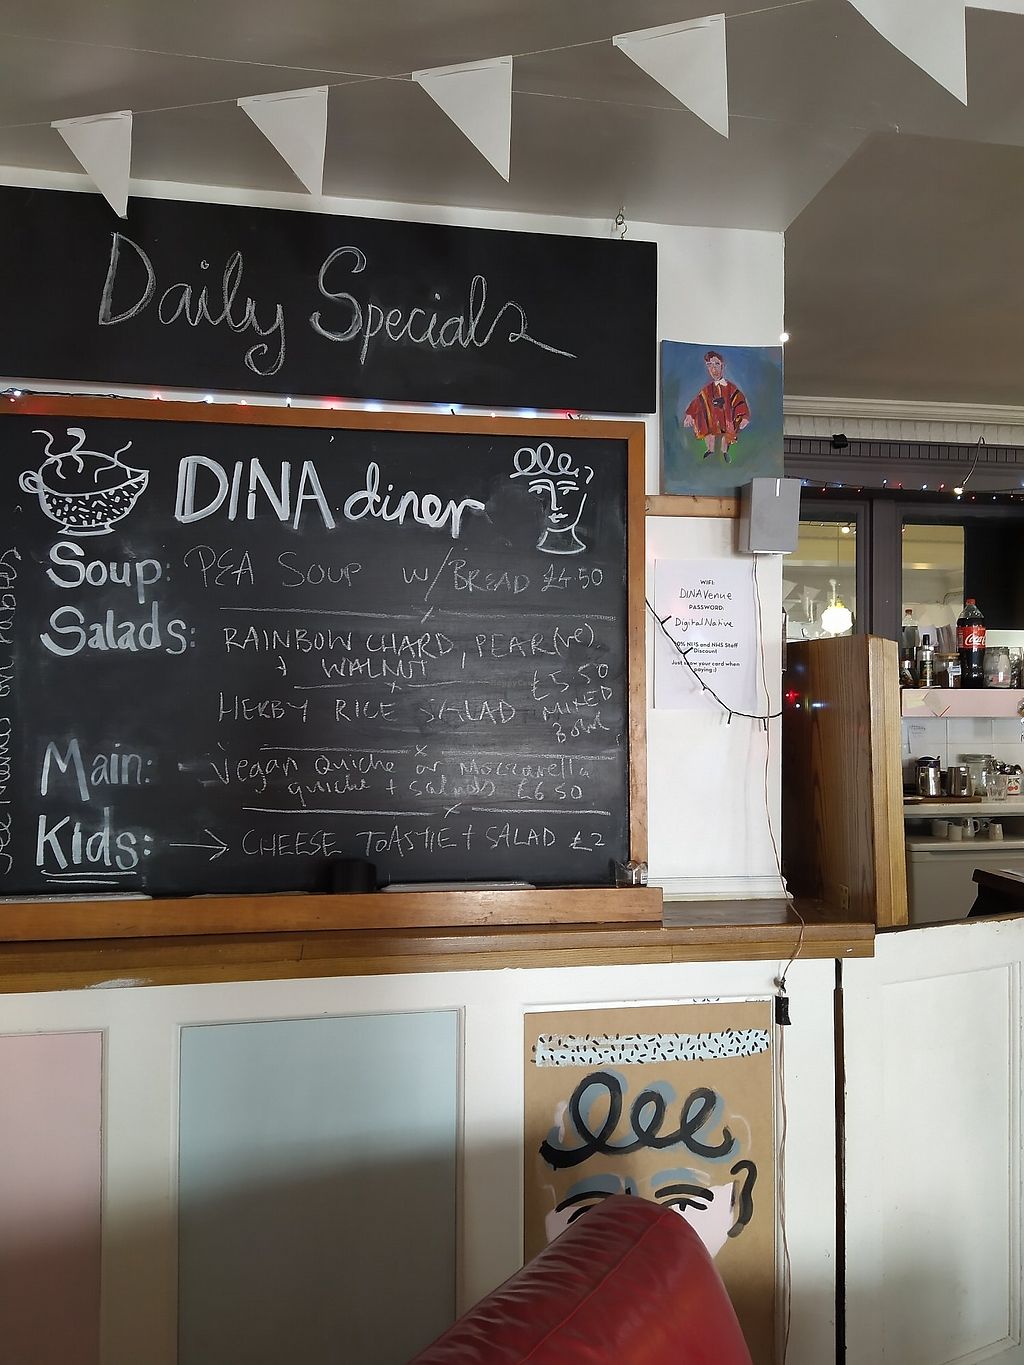 Daily Specials
DINA diner
Soup: PEA SOUP W/BREAD £4.50
Salads: RAINBOW CHARD, PEAR (ve)
+ WALNUT
£5.50
HERBY RICE SALAD MIXED
BOWL
Main: Vegan quiche or Mozzarella
quiche + salads £6.50
Kids: → CHEESE TOASTIE + SALAD £2
See Menus on tables
WIFI:
DINAVenue
PASSWORD:
DigitalNative
10% NHS and NHS Staff
Discount
Just show your card when
paying :)